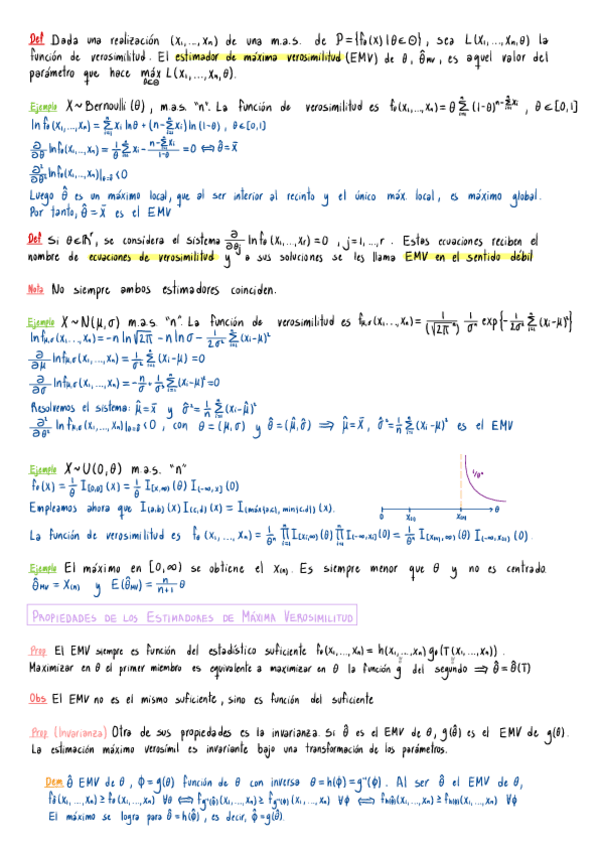 Def Dada una realización (x₁,...,xₙ) de una m.a.s. de P={f_θ(x)|θ∈Θ}, sea L(x₁,...,xₙ,θ) la
función de verosimilitud. El estimador de máxima verosimilitud (EMV) de θ, θ̂_MV, es aquel valor del
parámetro que hace máx_{θ∈Θ} L(x₁,...,xₙ,θ).
Ejemplo X~Bernoulli(θ), m.a.s. "n". La función de verosimilitud es f_θ(x₁,...,xₙ)=θ^{Σxᵢ}(1-θ)^{n-Σxᵢ}, θ∈[0,1]
ln f_θ(x₁,...,xₙ) = Σxᵢ lnθ + (n-Σxᵢ) ln(1-θ), θ∈[0,1]
∂/∂θ ln f_θ(x₁,...,xₙ) = 1/θ Σxᵢ - (n-Σxᵢ)/(1-θ) = 0 ⟺ θ̂=x̄
∂²/∂θ² ln f_θ(x₁,...,xₙ)|_{θ=θ̂} <0
Luego θ̂ es un máximo local, que al ser interior al recinto y el único máx. local, es máximo global.
Por tanto, θ̂=x̄ es el EMV
Def Si θ∈ℝʳ, se considera el sistema ∂/∂θⱼ ln f_θ(x₁,...,xᵣ)=0, j=1,...,r. Estas ecuaciones reciben el
nombre de ecuaciones de verosimilitud y a sus soluciones se les llama EMV en el sentido débil
Nota No siempre ambos estimadores coinciden.
Ejemplo X~N(μ,σ) m.a.s. "n". La función de verosimilitud es f_{μ,σ}(x₁,...,xₙ) = 1/(√2π)ⁿ 1/σⁿ exp{-1/2σ² Σ(xᵢ-μ)²}
ln f_{μ,σ}(x₁,...,xₙ) = -n ln√2π - n lnσ - 1/2σ² Σ(xᵢ-μ)²
∂/∂μ ln f_{μ,σ}(x₁,...,xₙ) = 1/σ² Σ(xᵢ-μ) = 0
∂/∂σ ln f_{μ,σ}(x₁,...,xₙ) = -n/σ + 1/σ³ Σ(xᵢ-μ)² = 0
Resolvemos el sistema: μ̂=x̄ y σ̂²=1/n Σ(xᵢ-μ̂)²
∂²/∂θ² ln f_{μ,σ}(x₁,...,xₙ)|_{θ=θ̂} <0, con θ=(μ,σ) y θ̂=(μ̂,σ̂) ⟹ μ̂=x̄, σ̂²=1/n Σ(xᵢ-μ)² es el EMV
Ejemplo X~U(0,θ) m.a.s. "n"
f_θ(x) = 1/θ I_{[0,θ]}(x) = 1/θ I_{[x,∞)}(θ) I_{(-∞,x]}(0)
1/θⁿ
Empleamos ahora que I_{(a,b)}(x) I_{(c,d)}(x) = I_{(máx(a,c), min(b,d))}(x).
0 x₍₁₎ x₍ₙ₎ θ
La función de verosimilitud es f_θ(x₁,...,xₙ) = 1/θⁿ ∏ I_{[xᵢ,∞)}(θ) ∏ I_{(-∞,xᵢ]}(0) = 1/θⁿ I_{[x₍ₙ₎,∞)}(θ) I_{(-∞,x₍₁₎]}(0).
Ejemplo El máximo en [0,∞) se obtiene el X₍ₙ₎. Es siempre menor que θ y no es centrado.
θ̂_MV = X₍ₙ₎ y E(θ̂_MV) = n/(n+1) θ
PROPIEDADES DE LOS ESTIMADORES DE MÁXIMA VEROSIMILITUD
Prop El EMV siempre es función del estadístico suficiente f_θ(x₁,...,xₙ) = h(x₁,...,xₙ) g_θ(T(x₁,...,xₙ)).
Maximizar en θ el primer miembro es equivalente a maximizar en θ la función g del segundo ⟹ θ̂=θ̂(T)
Obs El EMV no es el mismo suficiente, sino es función del suficiente
Prop (Invarianza) Otra de sus propiedades es la invarianza. Si θ̂ es el EMV de θ, g(θ̂) es el EMV de g(θ).
La estimación máximo verosímil es invariante bajo una transformación de los parámetros.
Dem θ̂ EMV de θ, ϕ=g(θ) función de θ con inversa θ=h(ϕ)=g⁻¹(ϕ). Al ser θ̂ el EMV de θ,
f_θ̂(x₁,...,xₙ) ≥ f_θ(x₁,...,xₙ) ∀θ ⟺ f_{g⁻¹(ϕ̂)}(x₁,...,xₙ) ≥ f_{g⁻¹(ϕ)}(x₁,...,xₙ) ∀ϕ ⟺ f_{h(ϕ̂)}(x₁,...,xₙ) ≥ f_{h(ϕ)}(x₁,...,xₙ) ∀ϕ
El máximo se logra para θ̂=h(ϕ̂), es decir, ϕ̂=g(θ̂).